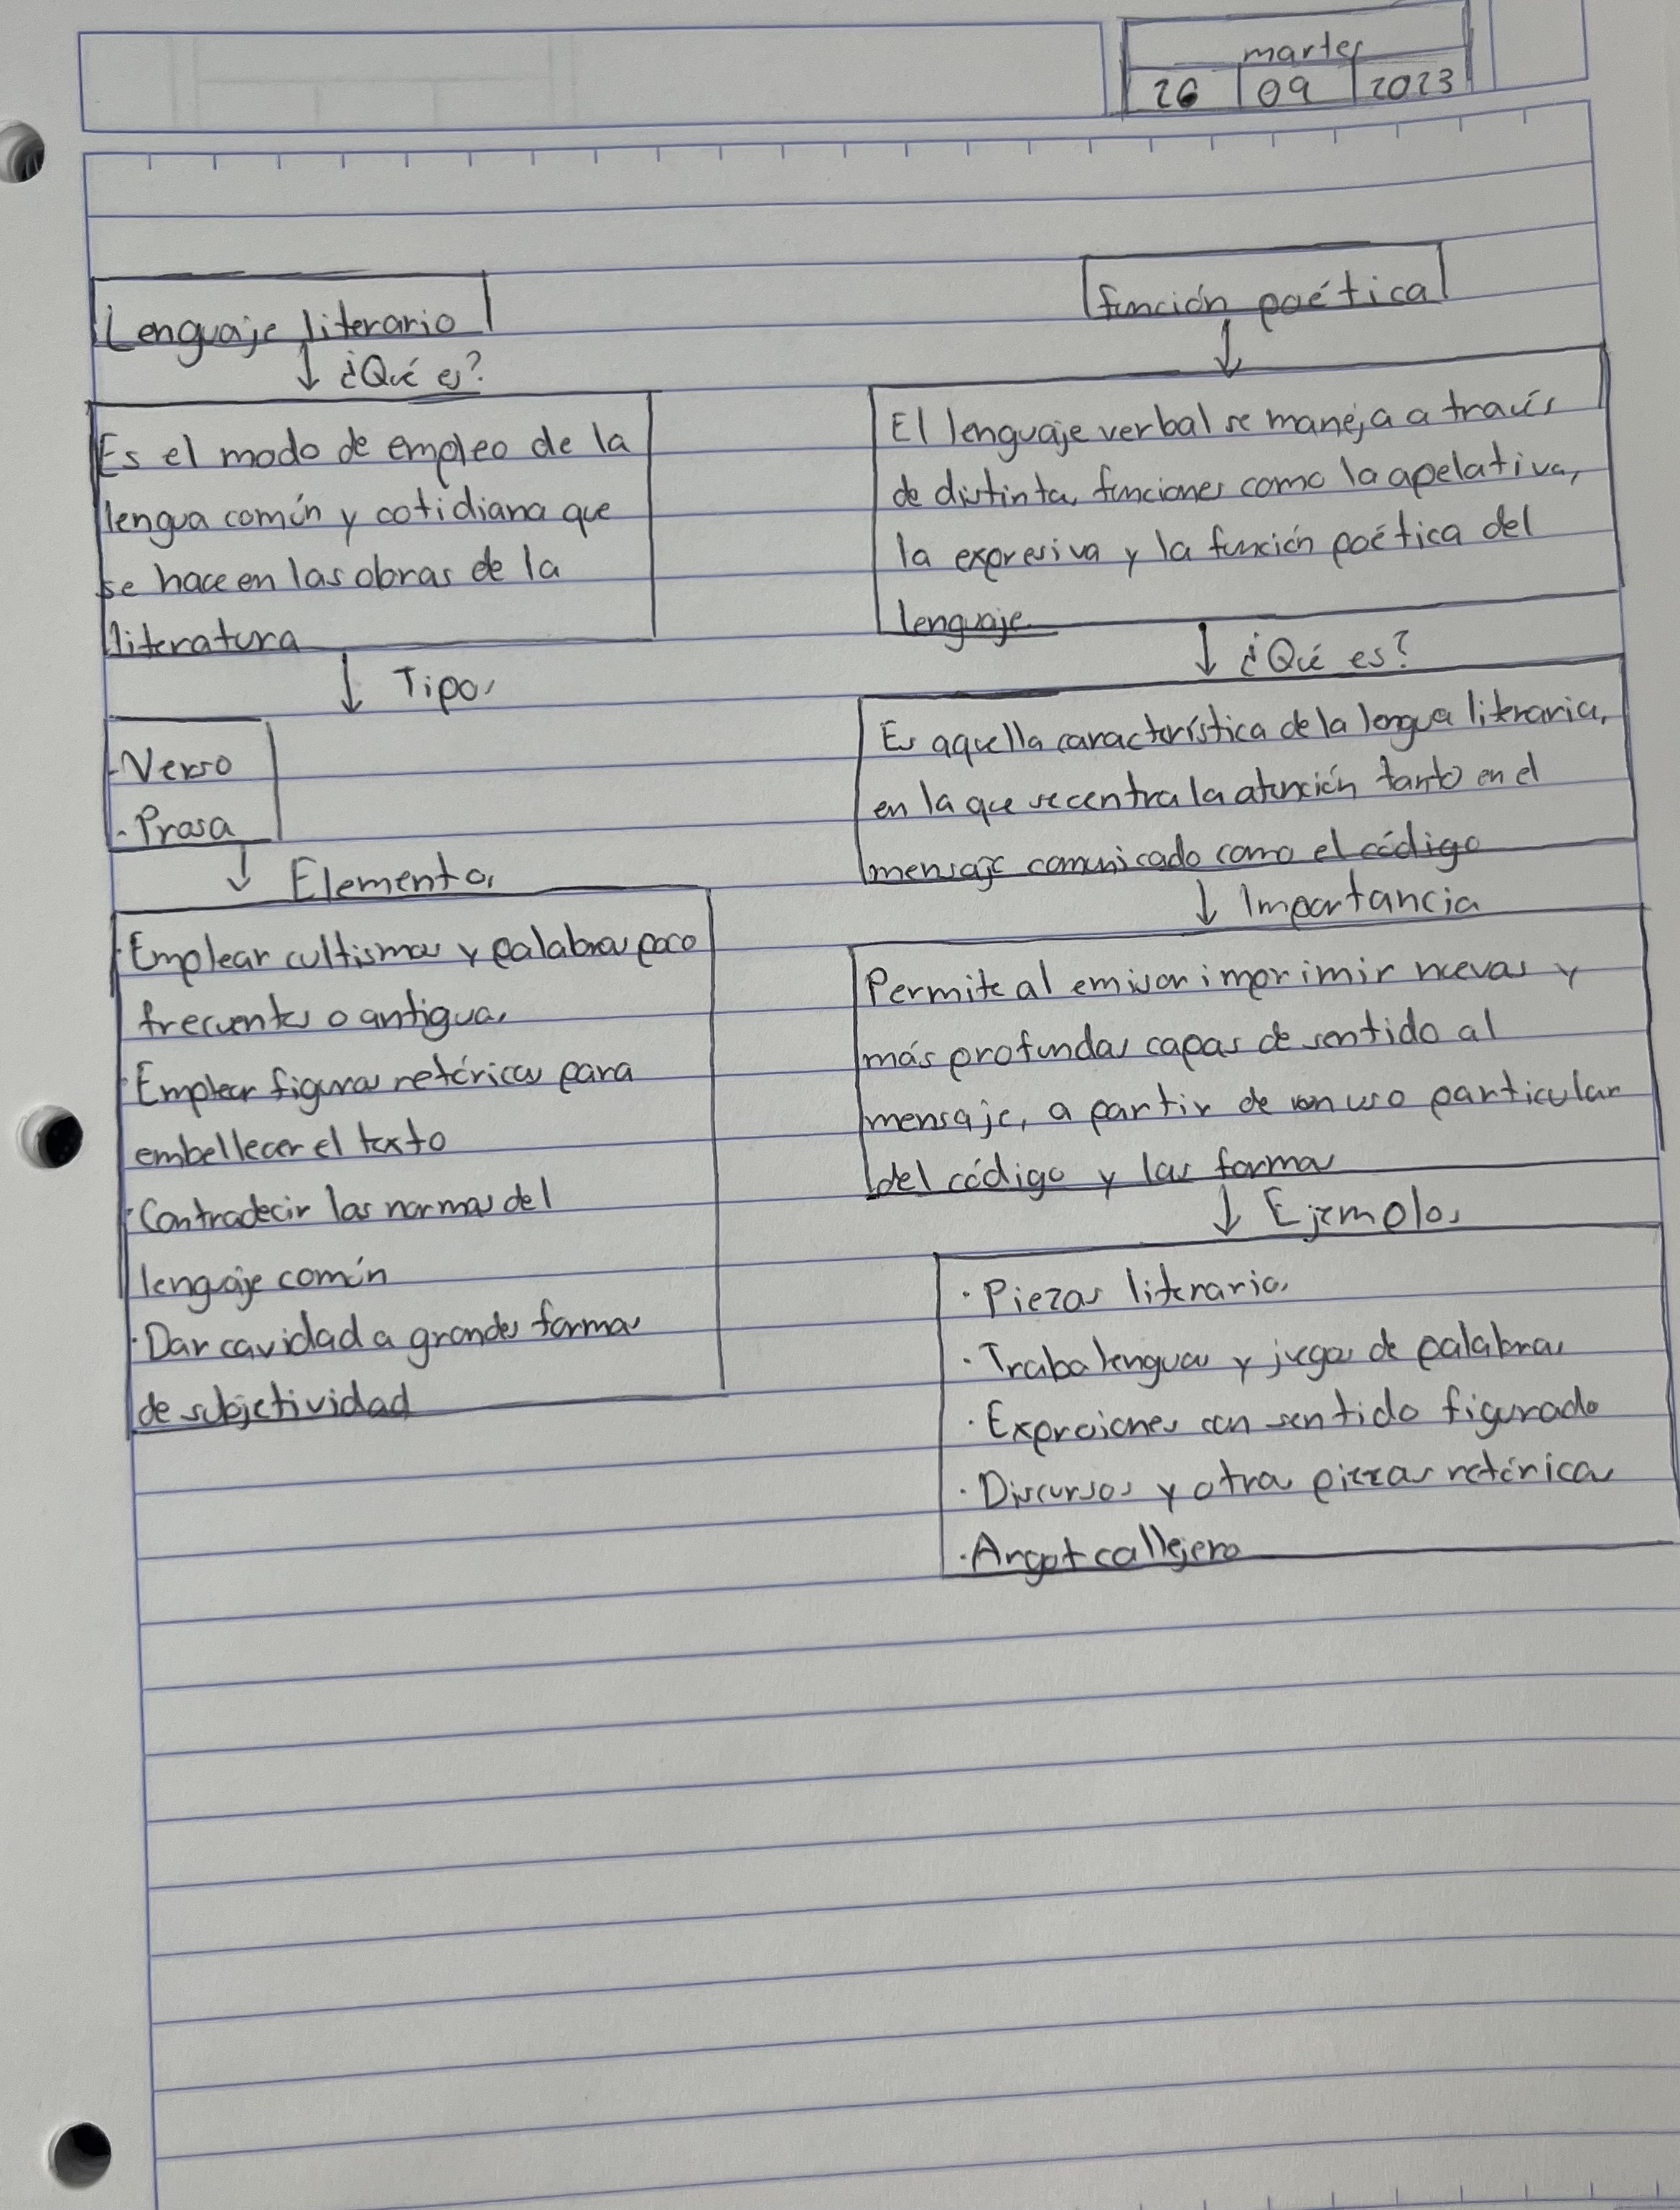 martes
26 09 2023
Lenguaje literario
¿Qué es?
Es el modo de empleo de la
lengua común y cotidiana que
se hace en las obras de la
literatura
Tipos
·Verso
·Prosa
Elementos
·Emplear cultismos y palabras poco
frecuentes o antiguas
·Emplear figuras retóricas para
embellecer el texto
·Contradecir las normas del
lenguaje común
·Dar cavidad a grandes formas
de subjetividad
función poética
El lenguaje verbal se maneja a través
de distintas funciones como la apelativa,
la expresiva y la función poética del
lenguaje
¿Qué es?
Es aquella característica de la lengua literaria,
en la que se centra la atención tanto en el
mensaje comunicado como el código
Importancia
Permite al emisor imprimir nuevas y
más profundas capas de sentido al
mensaje, a partir de un uso particular
del código y las formas
Ejemplos
·Piezas literarias
·Trabalenguas y juegos de palabras
·Expreciones con sentido figurado
·Discursos y otras piezas retóricas
·Argot callejero